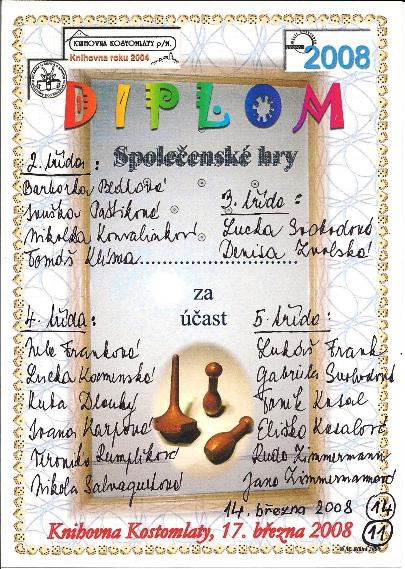 KNIHOVNA KOSTOMLATY p/M.
Knihovna roku 2004
2008
DIPLOM
Společenské hry
2. třída:
Barborka Bedlová
Anuška Paštiková
Nikolka Konvalinková
Tomáš Klíma
3. třída:
Lucka Svobodová
Denisa Zvolská
za
účast
4. třída:
Nela Franková
Lucka Kamenská
Kuba Dlouhý
Ivana Karpová
Veronika Rumplíková
Nikola Salvaquetová
5. třída:
Lukáš Frank
Gabriela Svobodová
Jeník Kasal
Eliška Kasalová
Luďa Zimmermann
Jana Zimmermannová
14. března 2008
14
11
Knihovna Kostomlaty, 17. března 2008